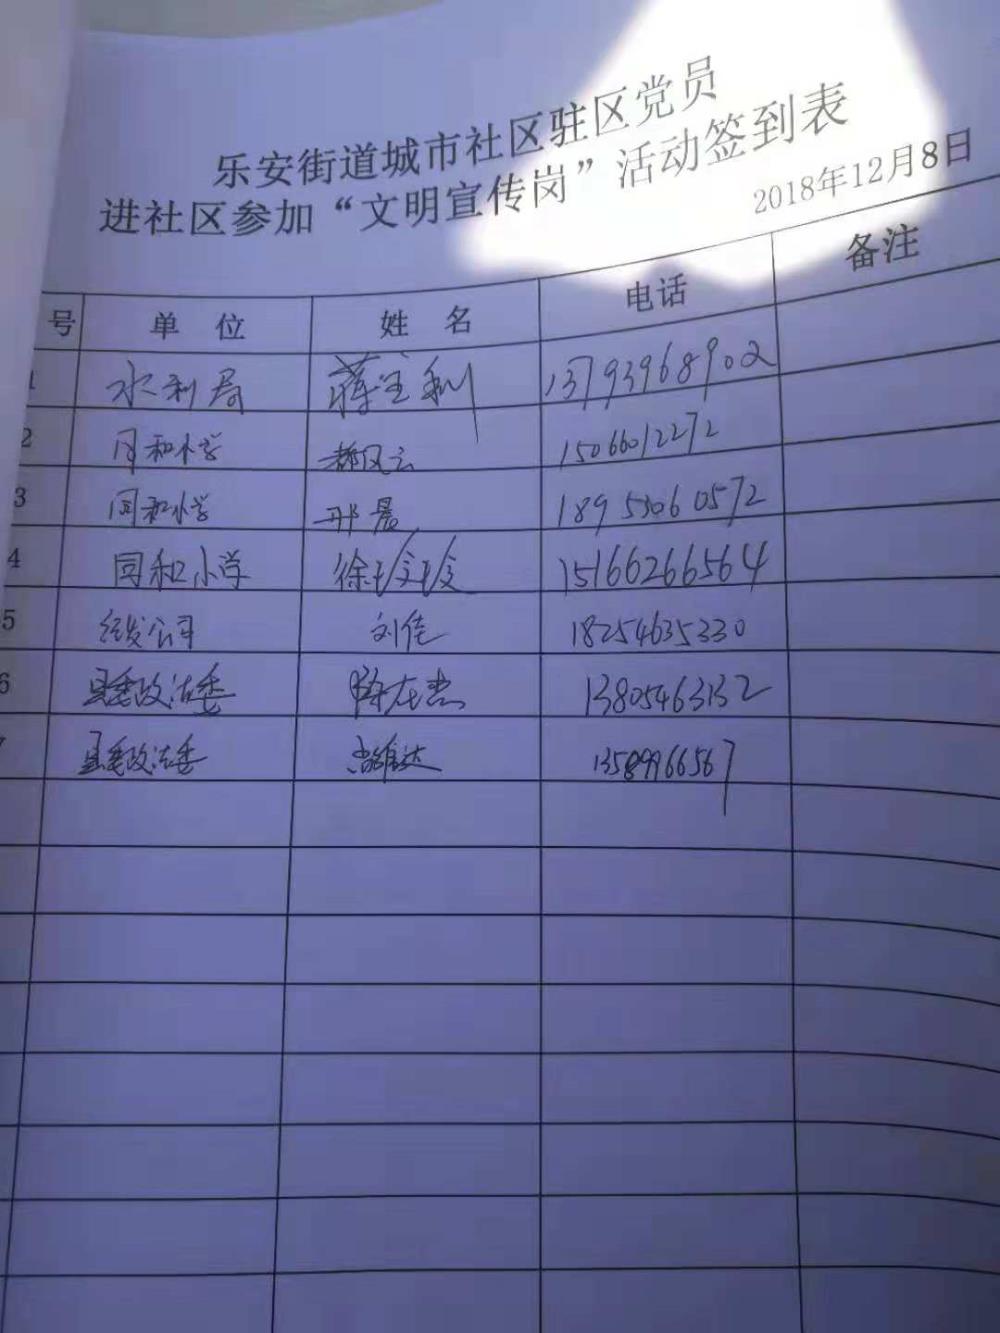 乐安街道城市社区驻区党员
进社区参加“文明宣传岗”活动签到表
2018年12月8日
号 单位 姓名 电话 备注
1 水利局 蒋宝利 13793968902
2 同和小学 都风云 15066012272
3 同和小学 邢晨 18953060572
4 同和小学 徐玟玟 15166266564
5 经发公司 刘佳 18254635330
6 县委政法委 陈左杰 13805463132
7 县委政法委 13589966567